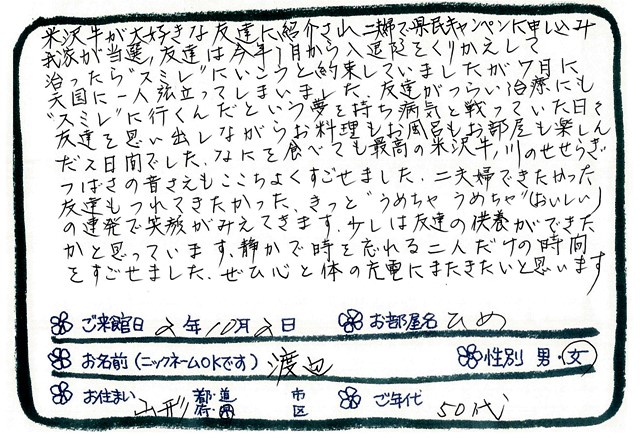 米沢牛が大好きな友達に紹介され二夫婦で県民キャンペンに申し込み
我家が当選、友達は今年1月から入退院をくりかえして
治ったら"スミレ"にいこうと約束していましたが7月に
天国に一人旅立ってしまいました、友達がつらい治療にも
"スミレ"に行くんだという夢を持ち病気と戦っていた日々
友達を思い出しながらお料理もお風呂もお部屋も楽しん
だ2日間でした、なにを食べても最高の米沢牛、川のせせらぎ
つばさの音さえもここちよくすごせました、二夫婦できたかった
友達もつれてきたかった、きっと"うめちゃ うめちゃ"(おいしい)
の連発で笑顔がみえてきます、少しは友達の供養ができた
かと思っています、静かで時を忘れる二人だけの時間
をすごせました、ぜひ心と体の充電にまたきたいと思います
ご来館日 2年10月2日 お部屋名 ひめ
お名前(ニックネームOKです) 渡辺 性別 男・女
お住まい 山形 都・道 府・県 市 区 ご年代 50代